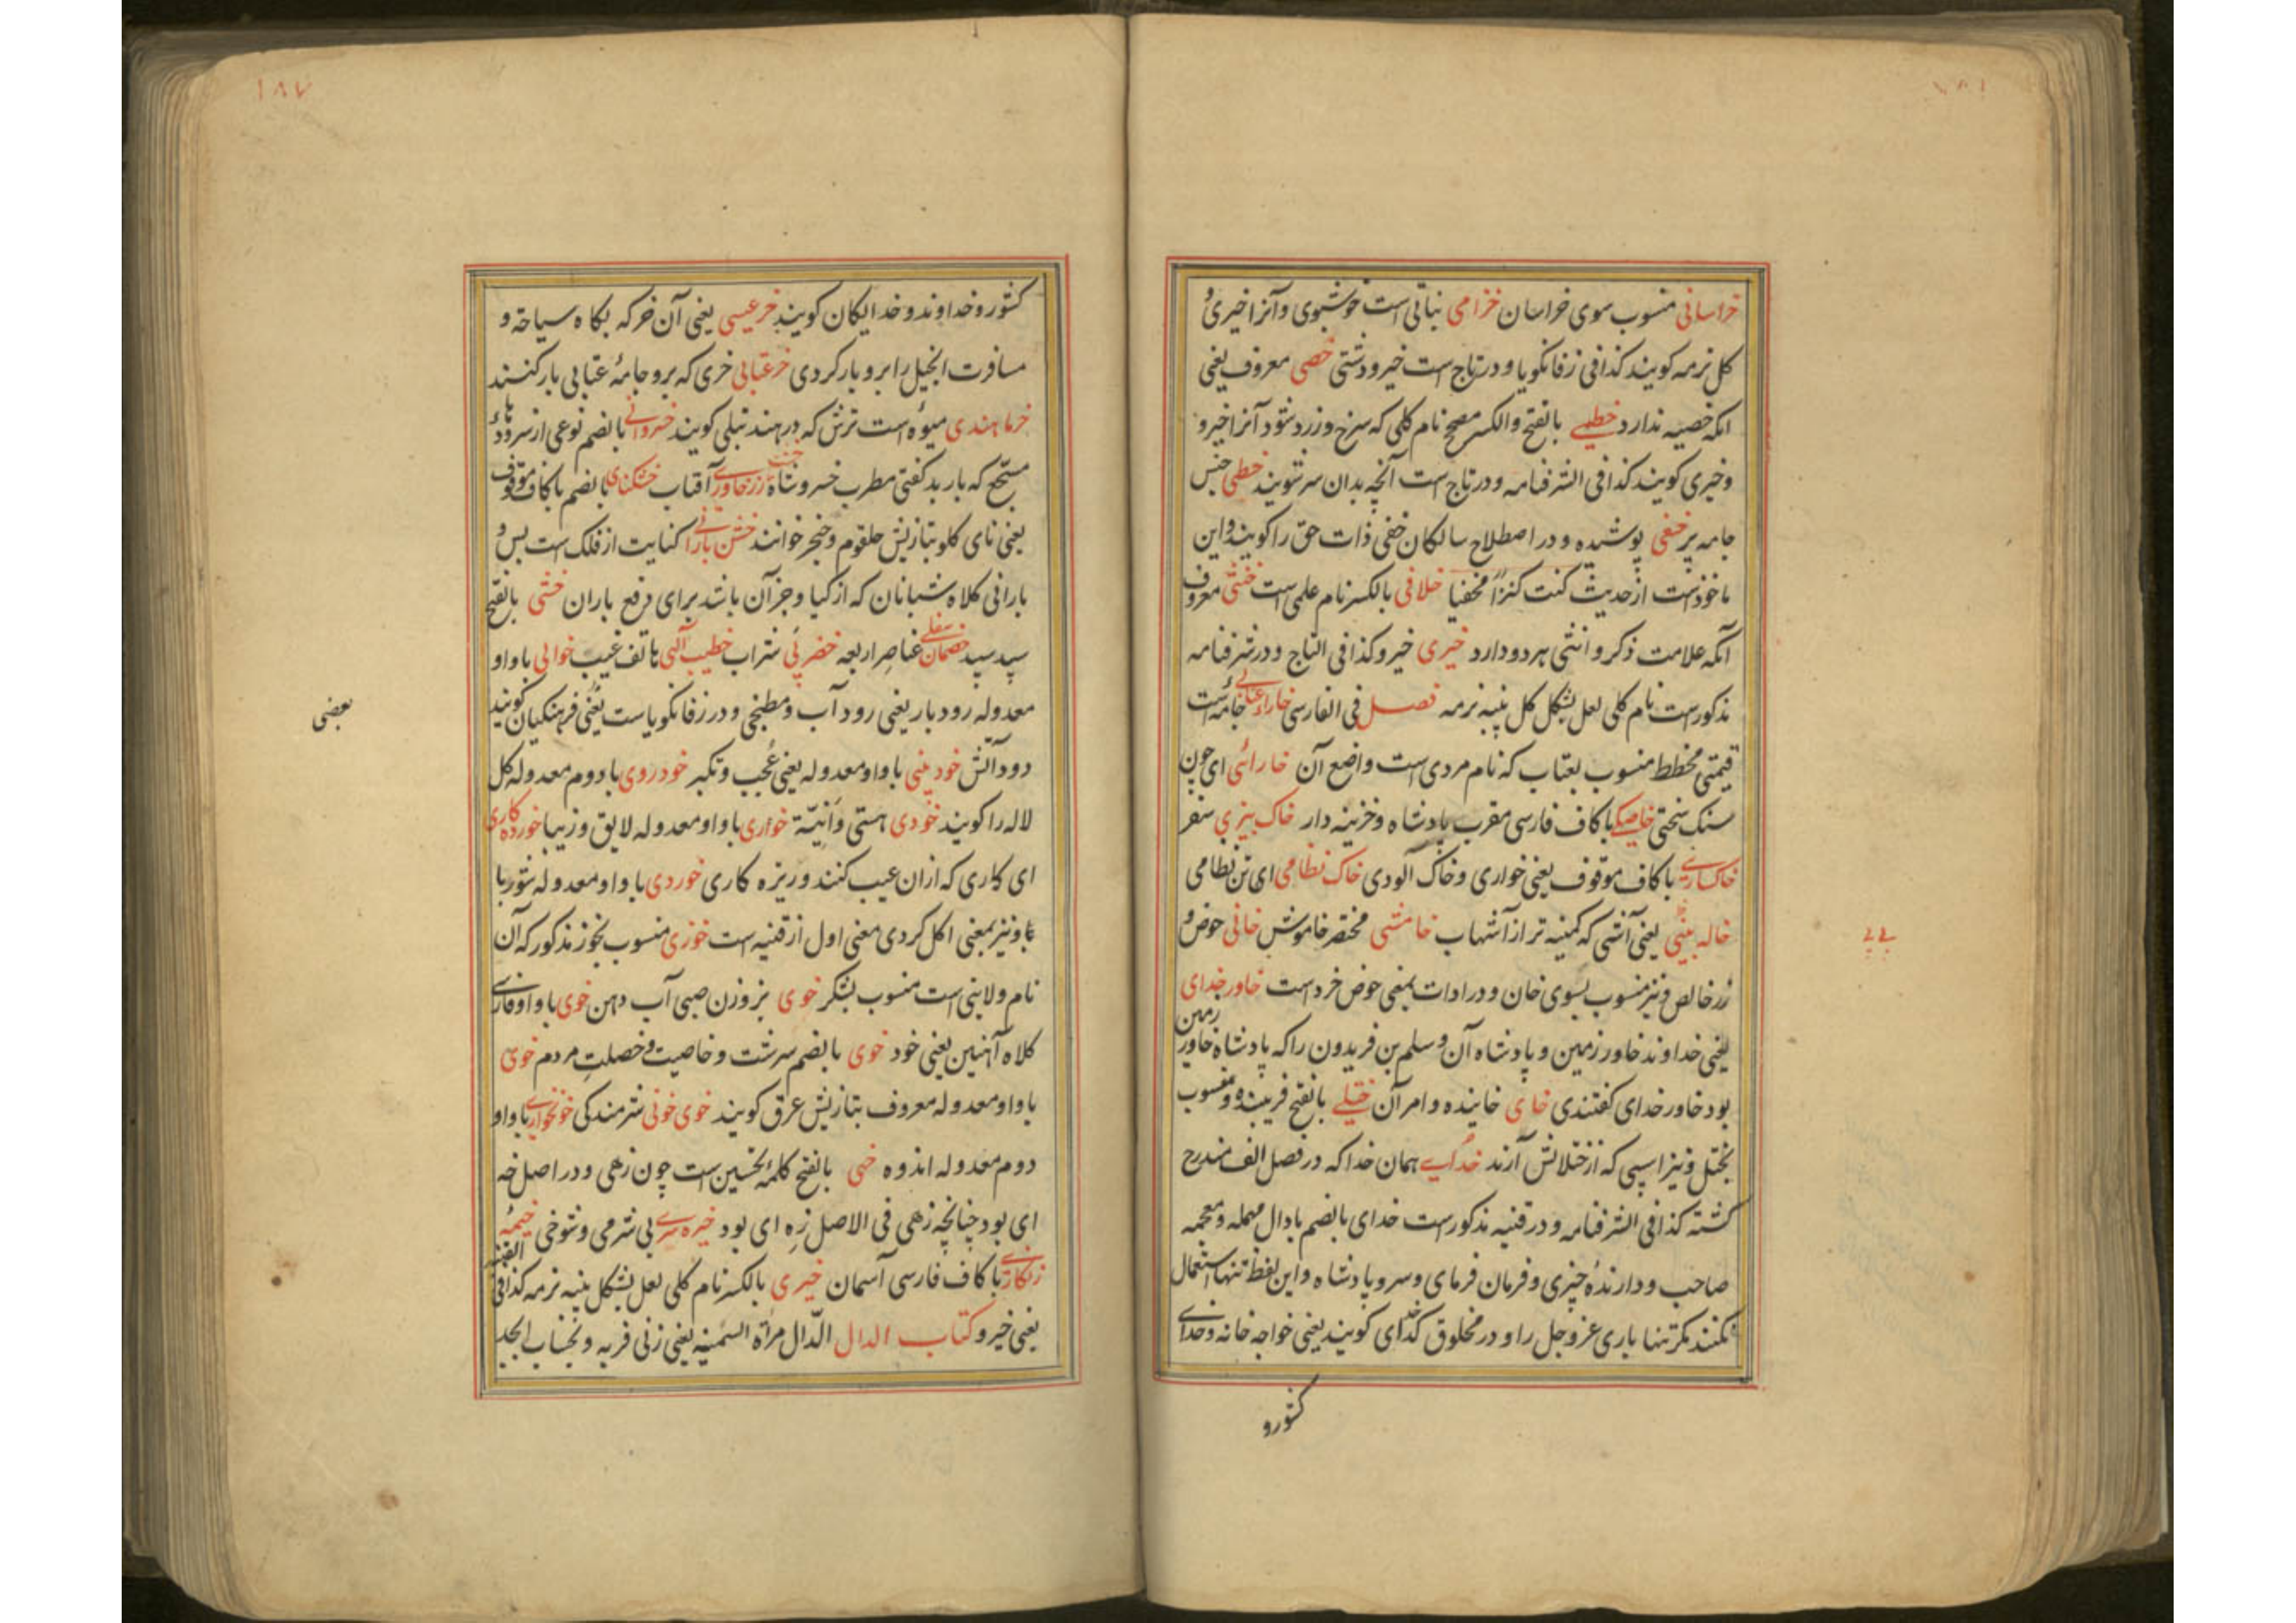 خراسانی منسوب سوی خراسان خزامی نباتی است خوشبوی و آنرا خیری و
کل نرمه کویند کذا فی زفانکویا و در تاج است خیرو دشتی خصی معروف یعنی
انکه خصیه ندارد خطیی بالفتح والکسر مصحح نام کلی که سرخ و زرد شود آنرا خیرو
و خیری کویند کذا فی الشرفنامه و در تاج است آنچه بدان سر شویند خطی جنس
جامه پر خفی پوشیده و در اصطلاح سالکان خفی ذات حق را کویند و این
ماخوذست از حدیث کنت کنزاً مخفیا خلافی بالکسر نام علمی است خنثی معروف
آنکه علامت ذکر و انثی هر دو دارد خیری خیرو کذا فی التاج و در شرفنامه
مذکورست نام کلی لعل بشکل کل پنبه نرمه فصل فی الفارسی خاراء عتابی جامه است
قیمتی مخطط منسوب بعتاب که نام مردی است واضع آن خارائی ای چون
سنک سختی خاصکی با کاف فارسی مقرب پادشاه و خزینه دار خاک بیزی سفر
خاکساری با کاف موقوف یعنی خواری و خاک آلودی خاک نظامی ای تن نظامی
خاله بینی یعنی آشی که کمینه تر از آشهاب خامشی مختصر خاموش خانی حوض و
زر خالص و نیز منسوب بسوی خان و در ادات بمعنی حوض خردست خاور خدای
یعنی خداوند خاور زمین و پادشاه آن و سلم بن فریدون را که پادشاه خاور زمین
بود خاور خدای کفتندی خای خاینده و امر آن ختلی بالفتح فریبنده و منسوب
بختل و نیز اسپی که از ختلانش آرند خدای همان خدا که در فصل الف مندرج
کشته کذا فی الشرفنامه و در قنیه مذکورست خدای بالضم با دال مهمله و معجمه
صاحب و دارندهٔ چیزی و فرمان فرمای و سرو پادشاه و این لفظ تنها استعمال
نکنند مکر تنها باری عز و جل را و در مخلوق کدخدای کویند یعنی خواجه خانه و خدای
کشور و
کشور و خداوند و خدایکان کویند خر عیسی یعنی آن خر که بکاه سیاحة و
مسافرت انجیل را برو بار کردی خر عتابی خری که برو جامهٔ عتابی بار کنند
خرما هندی میوه است ترش که در هند تبلی کویند خسروانی بالضم نوعی از سرود با
مسجع که باربد کفتی مطرب خسرو شاه آقاب خشکنای بالضم با کاف موقوف
یعنی نای کلو بتازیش حلقوم و خنجر خوانند کنایت از فلک است بس و
بارانی کلاه شبانان که از کیا و جز آن باشد برای دفع باران خشی بالفتح
سپید سپید خصمان سفلی عناصر اربعه خضرئی شراب خطیب آلهی هاتف غیب خوابی با واو
معدوله رودبار یعنی رود آب و مطبخی و در زفانکویاست یعنی فرهنکیان کویند
دود آتش خود بینی با واو معدوله یعنی عُجب و تکبر خودروی با دوم معدوله کل
لاله را کویند خودی هستی و اَنِیّة خواری با واو معدوله لایق و زیبا خورده کاری
ای کاری که ازان عیب کنند و ریزه کاری خوردی با واو معدوله شوربا
با و نیز بمعنی اکل کردی معنی اول از قنیه است خوزی منسوب بخوز مذکور که آن
نام ولایتی است منسوب بشکر خوی بر وزن صبی آب دهن خوی با واو فارسی
کلاه آهنین یعنی خود خوی بالضم سرشت و خاصیت و خصلتِ مردم خوی
با واو معدوله معروف بتازیش عرق کویند خوی خونی شرمندکی خونخواری با واو
دوم معدوله اندوه خهی بالفتح کلمهٔ تحسین است چون زهی و در اصل خه
ای بود چنانچه زهی فی الاصل زِه ای بود خیره سری بی شرمی و شوخی خیمهٔ
زنکاری با کاف فارسی آسمان خیری بالکسر نام کلی لعل بشکل پنبه نرمه کذا فی القنیه
یعنی خیرو کتاب الدال الدّال مرأة السمنیه یعنی زنی فربه و بحساب ابجد
بعضی
۱۸۷